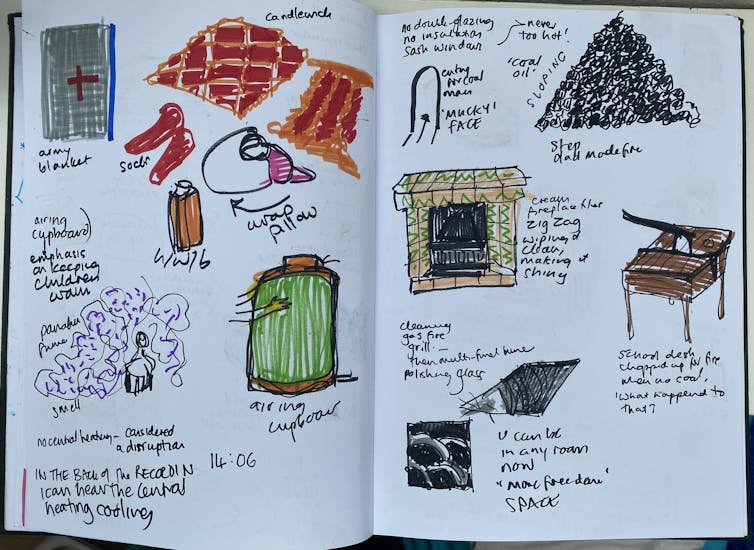 candlewick
army
blanket
socks
wrap
pillow
h/w/b
airing
cupboard
emphasis
on keeping
children
warm
paraffin
fume
smell
airing
cupboard
no central heating - considered
a disruption
IN THE BACK OF THE RECORDIN
I can hear the central
heating cooling
14:06
no double-glazing
no insulation
sash window
never
too hot!
'coal
oil'
SLOPING
entry
for coal
man
'MUCKY'
FACE
Step
dad made fire
cream
fireplace tiles
zig zag
wiping it
clean,
making it
shiny
cleaning
gas fire
grill -
then multi-fuel
polishing glass
school desk
chopped up for fire
when no coal.
'what happened to
that?'
U can be
in any room
now
"more freedom"
SPACE